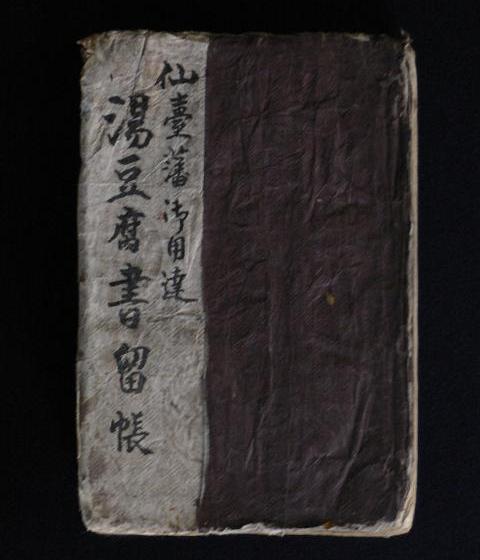 仙臺藩御用達
湯豆腐書留帳